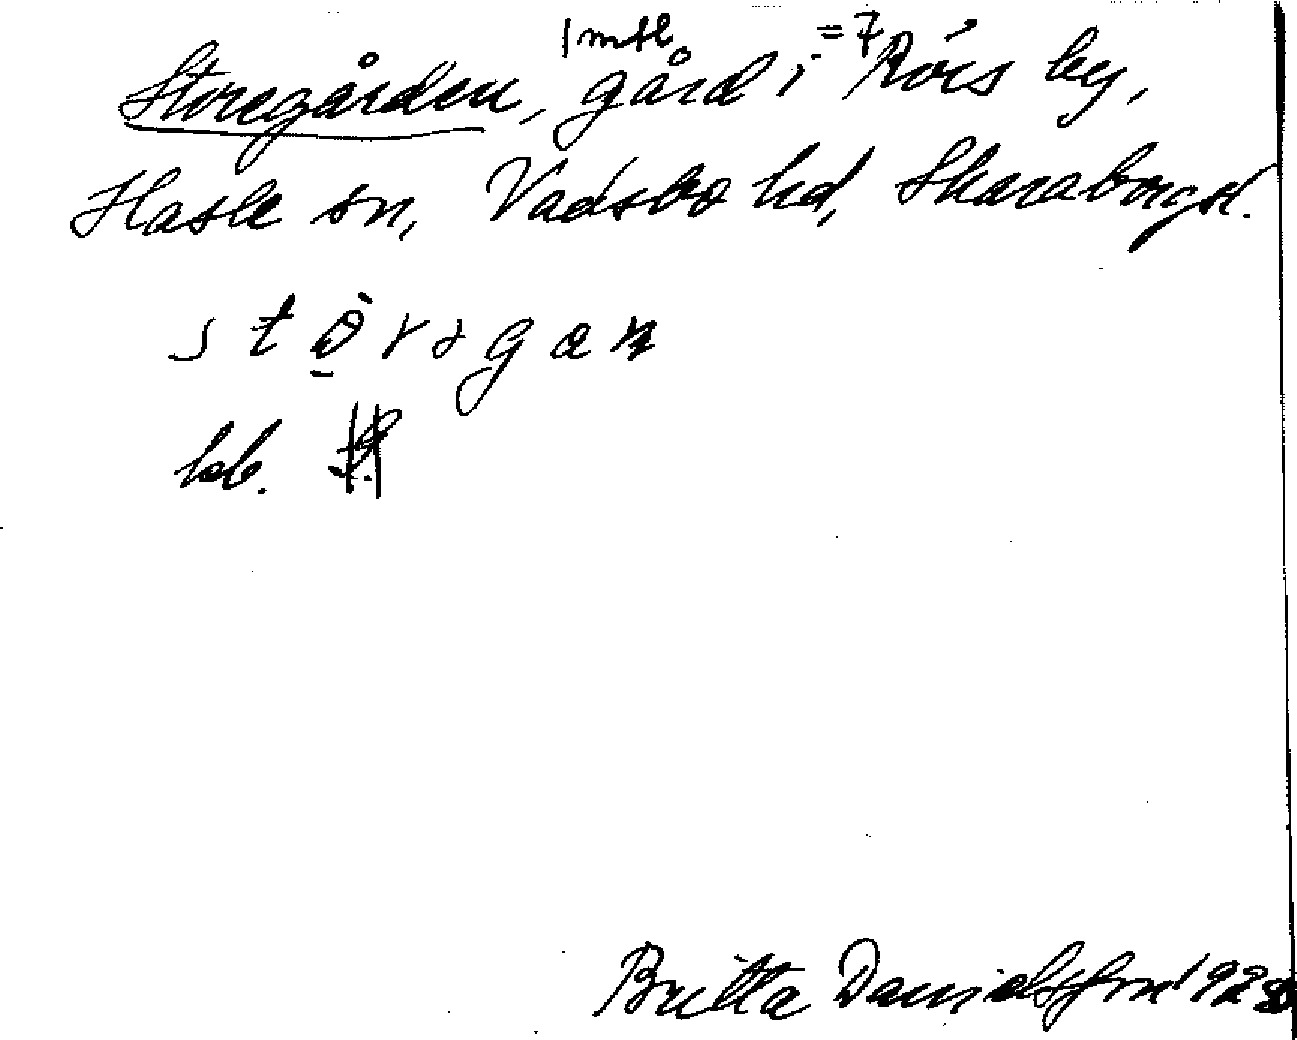 1 mtl = 7
Storegården, gård i Rörs by,
Hasle sn, Vadsbo hd, Skaraborgsl.
beb.
Britta Danielsson 1928